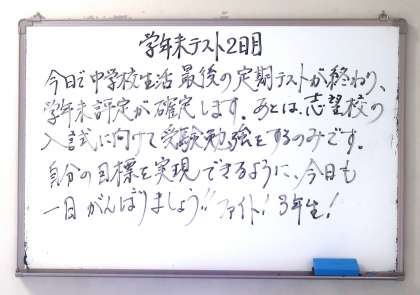 学年末テスト2日目
今日で中学校生活最後の定期テストが終わり、
学年末評定が確定します。あとは、志望校の
入試に向けて受験勉強をするのみです。
自分の目標を実現できるように、今日も
一日がんばりましょう!! ファイト! 3年生!